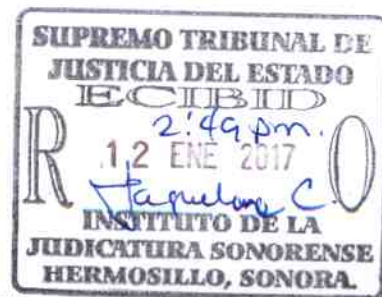 SUPREMO TRIBUNAL DE
JUSTICIA DEL ESTADO
RECIBIDO
2:49 pm.
12 ENE 2017
Jaquelone C.
INSTITUTO DE LA
JUDICATURA SONORENSE
HERMOSILLO, SONORA.